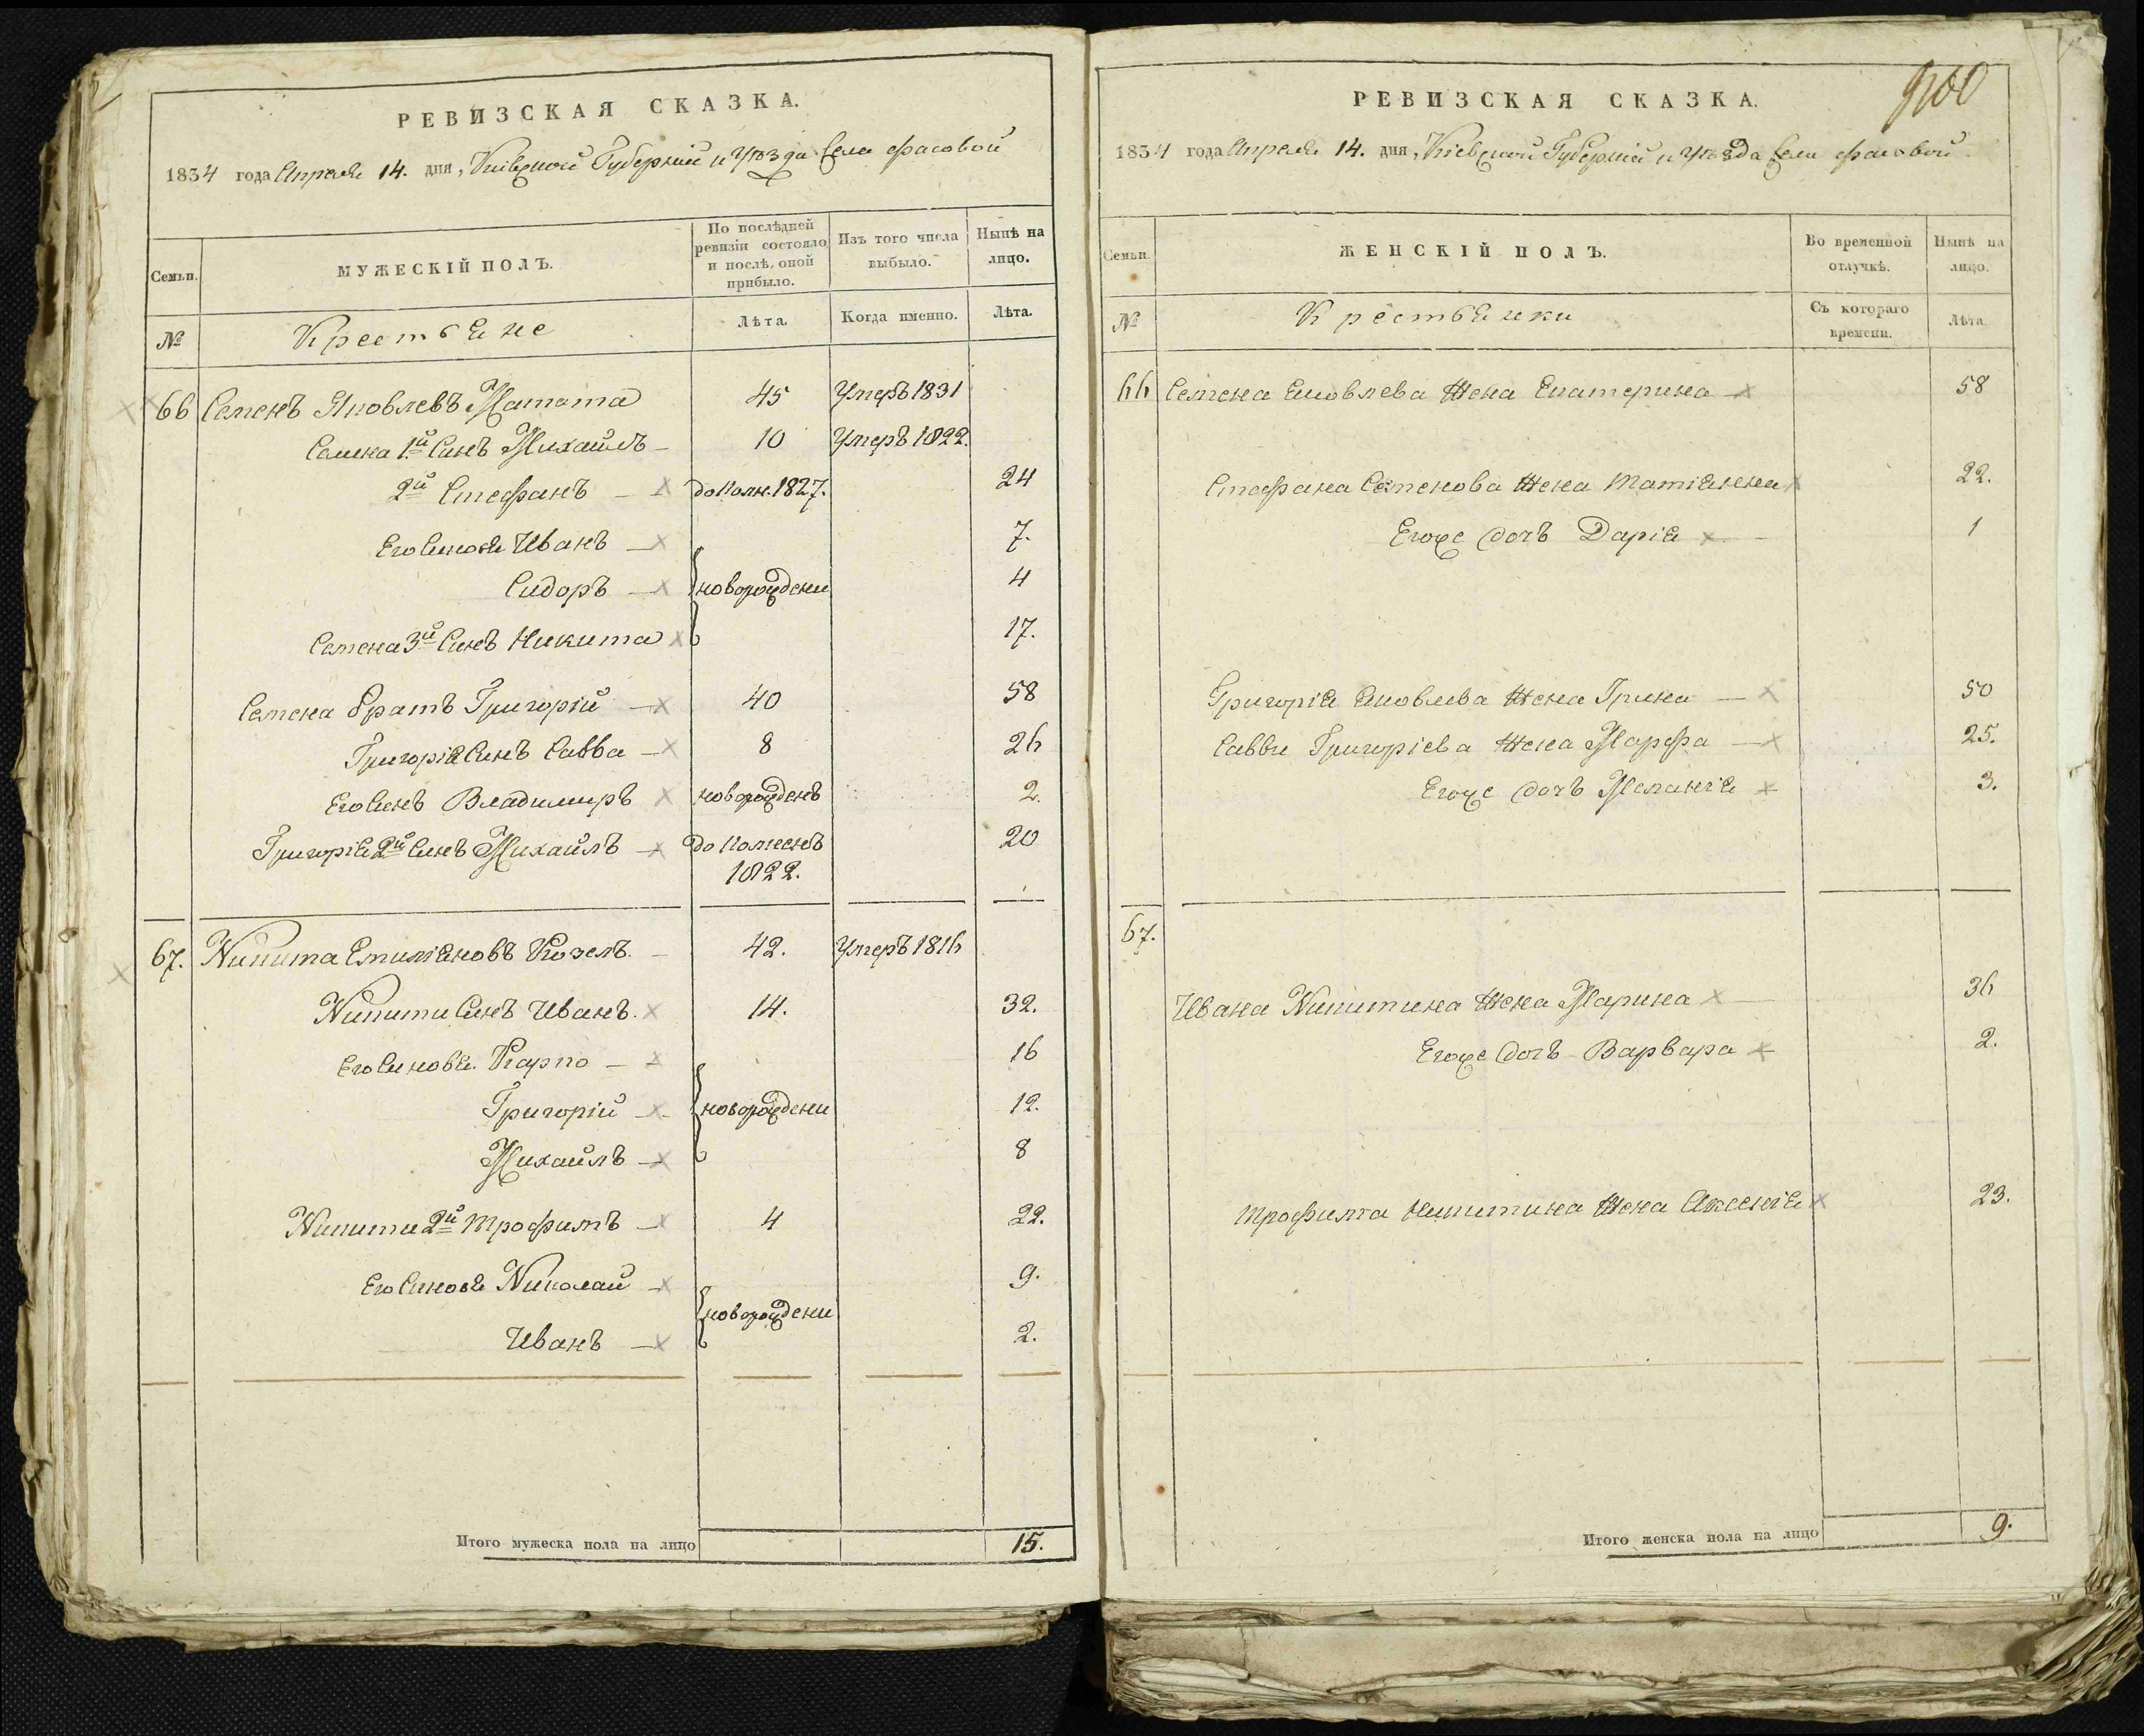 РЕВИЗСКАЯ СКАЗКА.
1834 года Апреля 14. дня, Кіевской Губерніи и Уѣзда Села Фасовой
Семьи.
МУЖЕСКІЙ ПОЛЪ.
По послѣдней ревизіи состояло и послѣ оной прибыло.
Изъ того числа выбыло.
Нынѣ на лицо.
№
Крестьяне
Лѣта.
Когда именно.
Лѣта.
66 Семенъ Яковлевъ 45 Умеръ 1831
Семена 1й Синъ Михаилъ 10 Умеръ 1822.
2й Стефанъ до Полн. 1827. 24
Его Синовя Иванъ 7.
Сидоръ новорождени 4
Семена 3й Синъ Никита 17.
Семена братъ Григорій 40 58
Григорія Синъ Савва 8 26
Его Синъ Владимиръ новорожденъ 2.
Григорія 2й Синъ Михаилъ 20
1822.
67. Никита Емиліяновъ Козелъ. 42. Умеръ 1816
Никити Синъ Иванъ. 14. 32.
Его Синовя. Карпо 16
Григорій новорождени 12.
Михаилъ 8
Никити 2й Трофимъ 4 22.
Его Синовя Николай 9.
новорождени
Иванъ 2.
Итого мужеска пола на лицо 15.
РЕВИЗСКАЯ СКАЗКА.
1834 года Апреля 14. дня, Кіевской Губерніи и Уѣзда Села Фасовой
Семьи.
ЖЕНСКІЙ ПОЛЪ.
Во временной отлучкѣ.
Нынѣ на лицо.
№
Крестьянки
Съ котораго времени.
Лѣта.
66 Семена Яковлева Жена Екатерина 58
Стефана Семенова Жена Татіянна 22.
Егоже Дочъ Дарія 1
Григорія Яковлева Жена Ирина 50
Савви Григоріева Жена Марфа 25.
Егоже Дочъ Меланія 3.
67.
Ивана Никитина Жена Марина 36
Егоже Дочъ Варвара 2.
Трофима Никитина Жена Аксенія 23.
Итого женска пола на лицо 9.